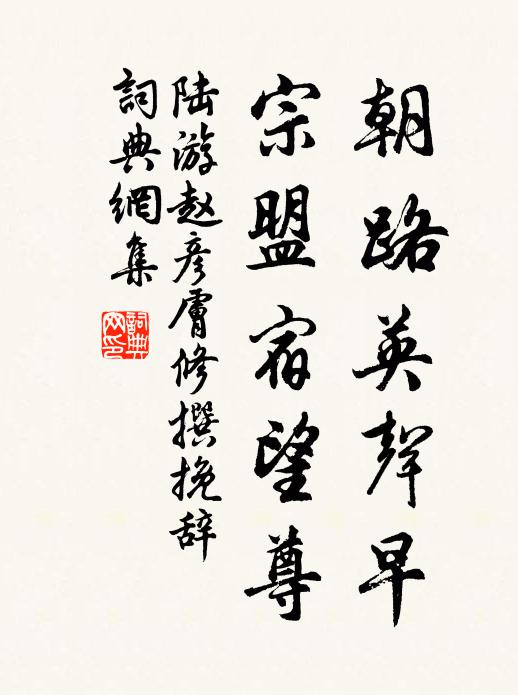 朝路英聲早
宗盟宿望尊
陆游赵彦膚修撰挽辞
詞典網集
詞典
网印